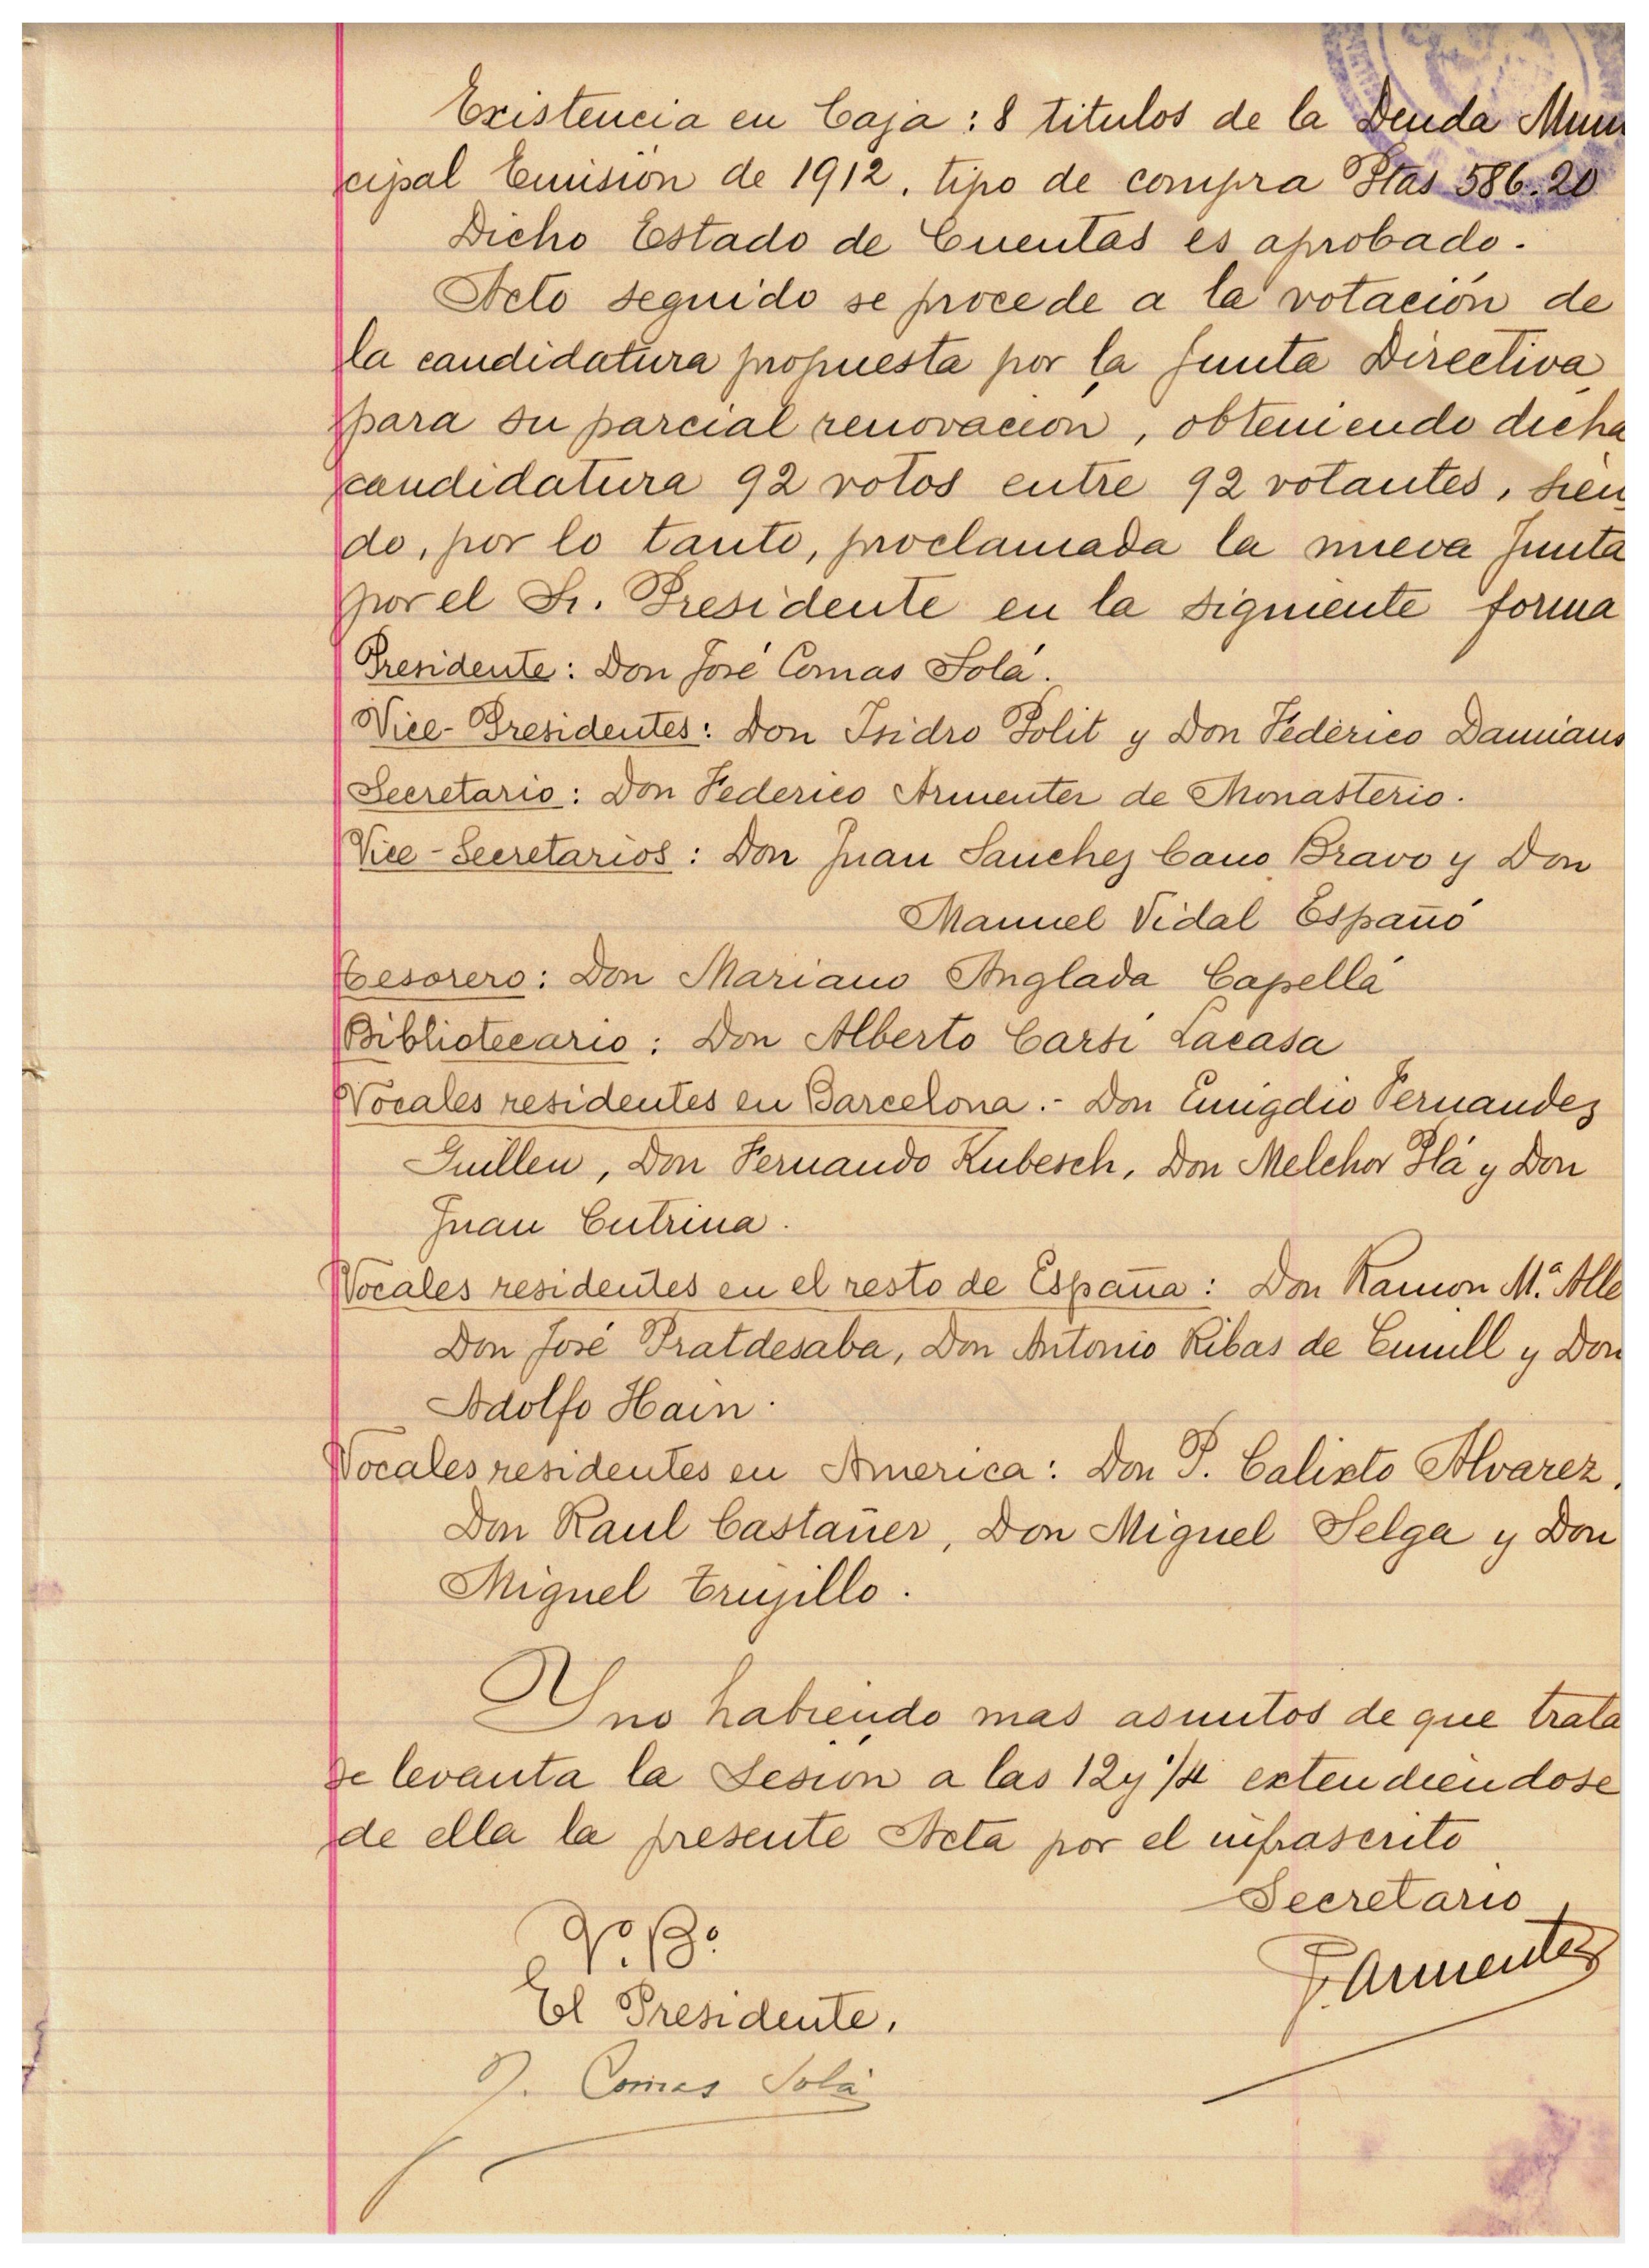 Existencia en Caja: 8 titulos de la Deuda Muni
cipal Emisión de 1912, tipo de compra Ptas 586.20
Dicho Estado de Cuentas es aprobado.
Acto seguido se procede a la votación de
la candidatura propuesta por la Junta Directiva
para su parcial renovación, obteniendo dicha
candidatura 92 votos entre 92 votantes, sien
do, por lo tanto, proclamada la nueva Junta
por el Sr. Presidente en la siguiente forma
Presidente: Don José Comas Solá.
Vice-Presidentes: Don Isidro Polit y Don Federico Damians
Secretario: Don Federico Armenter de Monasterio.
Vice-Secretarios: Don Juan Sanchez Cano Bravo y Don
Manuel Vidal Españó
Tesorero: Don Mariano Anglada Capellá
Bibliotecario: Don Alberto Carsí Lacasa
Vocales residentes en Barcelona.- Don Emigdio Fernandez
Guillen, Don Fernando Kubesch, Don Melchor Plá y Don
Juan Cutrina.
Vocales residentes en el resto de España: Don Ramon M.ª Alle
Don José Pratdesaba, Don Antonio Ribas de Cunill y Don
Adolfo Hain.
Vocales residentes en America: Don P. Calixto Alvarez,
Don Raul Castañer, Don Miguel Selga y Don
Miguel Trujillo.
Y no habiendo mas asuntos de que trata
se levanta la Sesión a las 12 y 1/4 extendiéndose
de ella la presente Acta por el infrascrito
Secretario
Vº. Bº.
F. Armenter
El Presidente,
J. Comas Solá